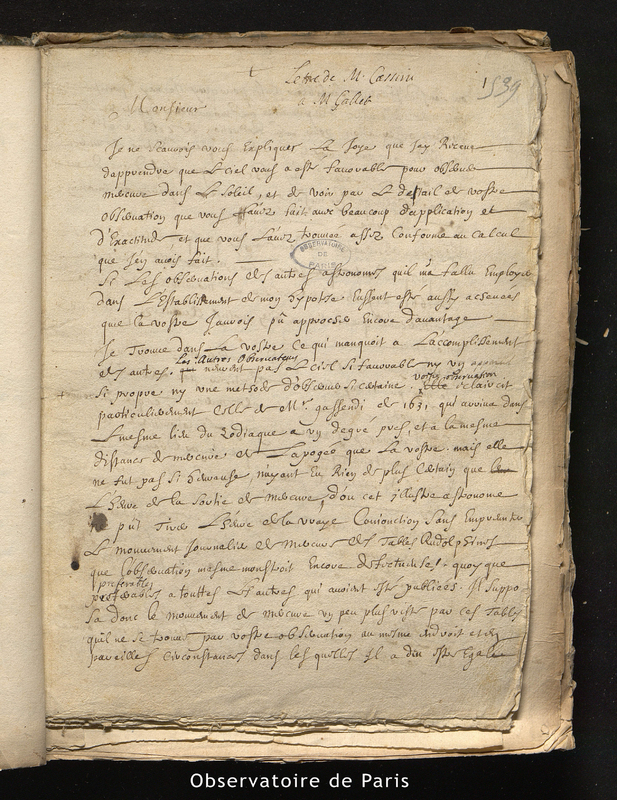 Lettre de Mr Cassini
à Mr Gallet
1
539
Monsieur
Je ne scaurois vous expliquer La Joye que Jay Receue
dapprendre que Le ciel vous a esté favorable pour observer
mercure dans Le Soleil, et de voir par Le destail de vostre
observation que vous L'avez fait avec beaucoup d'application et
d'Exactitude, et que vous L'avez trouvée assez Conforme au calcul
que Jen avois fait.
OBSERVATOIRE DE PARIS
Si Les observations des autres astronomes quil m'a fallu Employer
dans L'Establissement de mon hypotese Eussent esté aussy
que la vostre Jaurois pû approcher Encore davantage
Je Trouve dans La vostre Ce qui manquoit a L'accomplissement
Les Autres Observateurs
des autres. neurent pas Le ciel si favorable ny un
si propre ny une metode d'observer si certaine. vostre observation esclaircit
particulierement Celle de Mr. gassendi de 1631 qui arriva dans
Le mesme lieu du Zodiaque a un degré pres, et a la mesme
distance de mercure et L'apogée que La vostre. mais elle
ne fut pas si heureuse, n'ayant Eu Rien de plus Certain que
L'heure de la sortie de mercure, d'ou cet illustre astronome
pût Tirer L'heure de la vraye Conionction sans Emprunter
Le mouvement Journalier de Mercure des Tables Rudolphines
que L'observation mesme monstroit Encore defectueuses quoy que
preferables
a touttes Les autres qui avoient esté publiées. Il suppo-
sa donc le mouvement de mercure un peu plus viste par ces Tables
quil ne se trouve par vostre observation au mesme endroit et en
pareilles Circonstances dans lesquelles Il a deu estre Egal
Observatoire de Paris